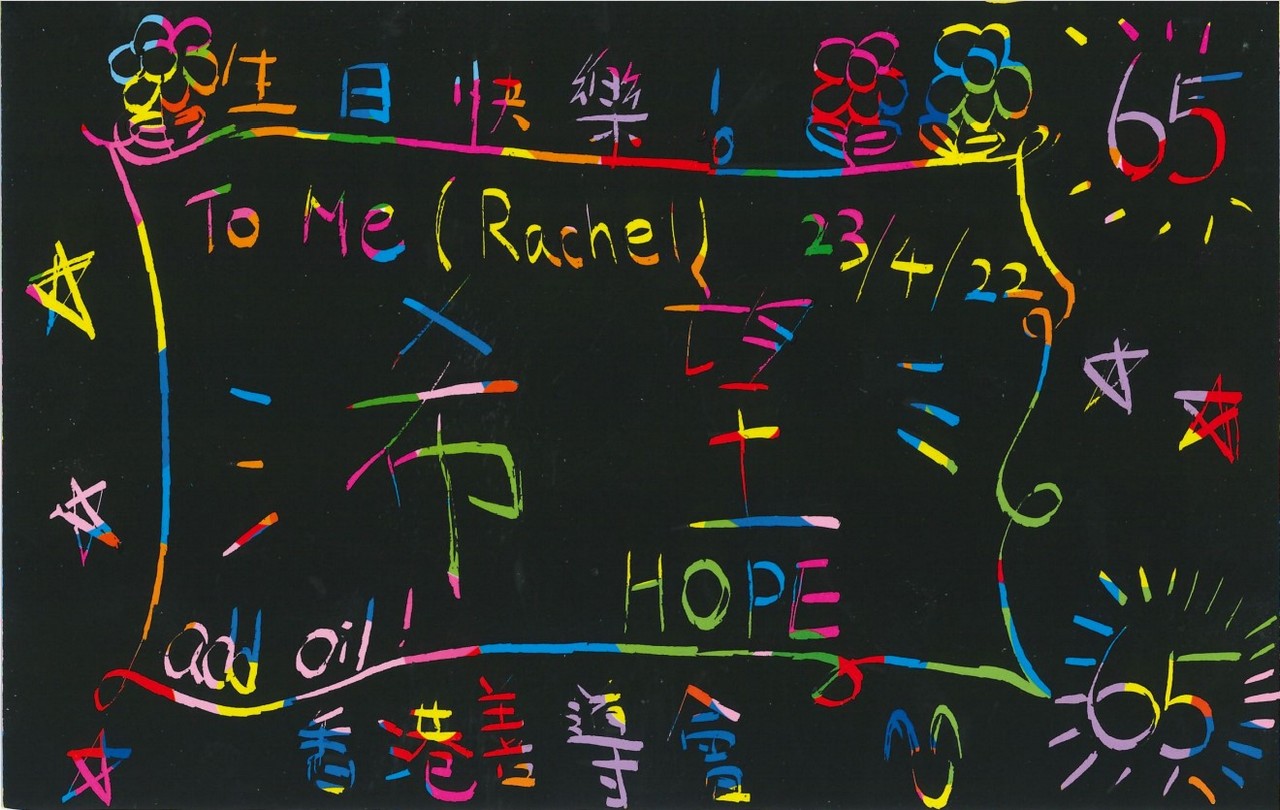 生日快樂! 65
To Me (Rachel) 23/4/22
希望
HOPE
add oil!
香港善導會 65